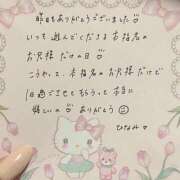 昨日もありがとうございました♡
いつも遊んでくださる本指名の
お兄様だけの日♡
こうやって、本指名のお兄様だけで
1日過ごさせてもらって本当に
嬉しい♡ありがとう☺
ひなみ♡